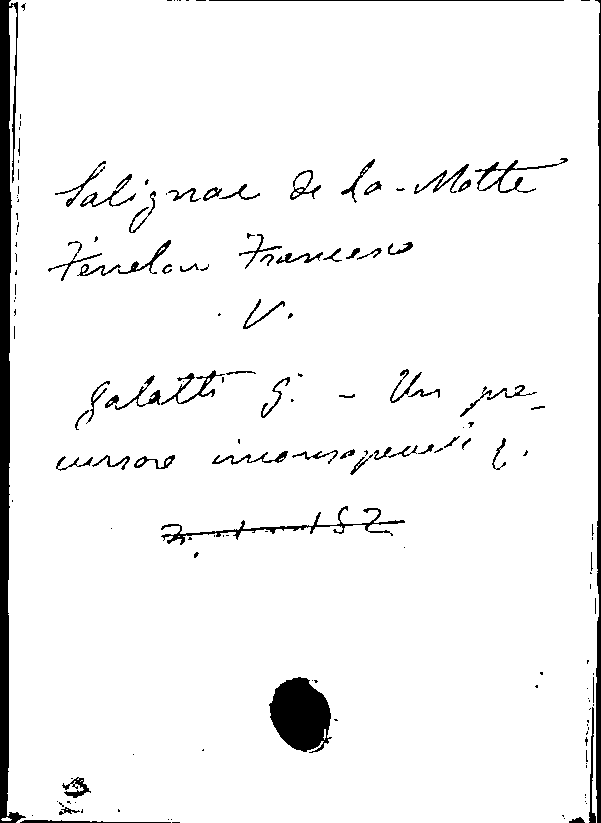 Salignac de la-Motte
Fénelon Francesco
V.
Galatti G. - Un pre-
cursore inconsapevole